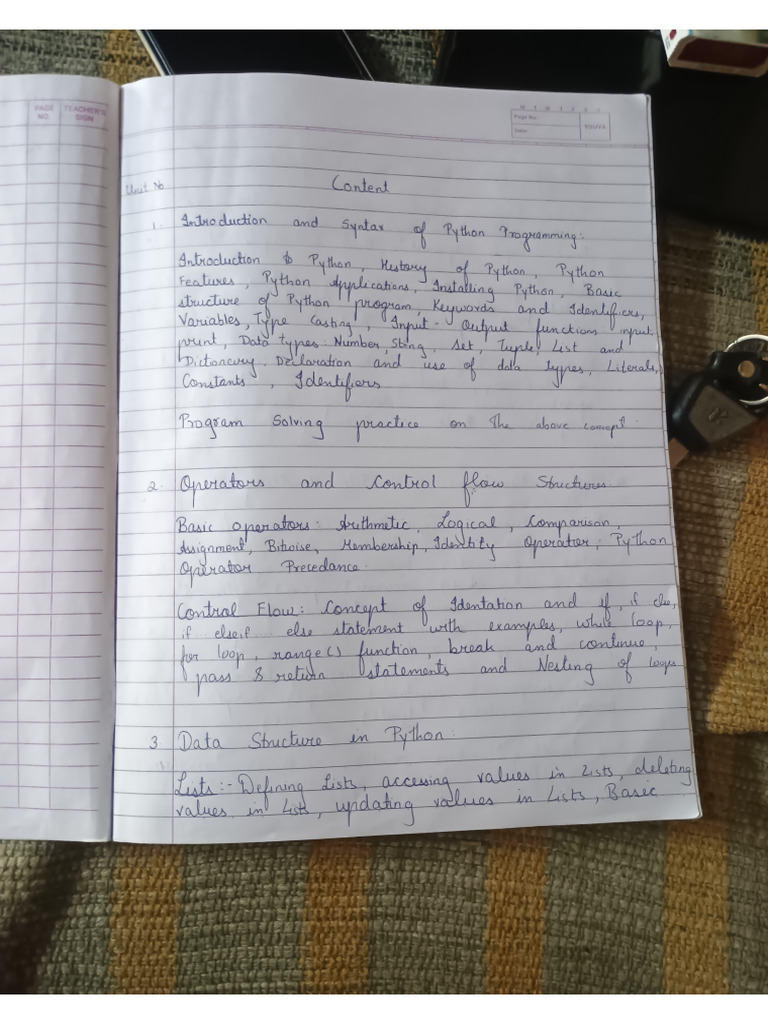 PAGE NO.
TEACHER'S SIGN
Page No.
Date:
YOUVA
Unit No.
Content
1. Introduction and Syntax of Python Programming:
Introduction to Python, History of Python, Python
Features, Python Applications, Installing Python, Basic
structure of Python program, Keywords and Identifiers,
Variables, Type Casting, Input-Output functions input,
print, Data types: Number, Sting, Set, Tuple, List and
Dictionary, Declaration and use of data types, Literals,
Constants, Identifiers
Program Solving practice on The above concept.
2. Operators and Control flow Structures.
Basic operators: Arithmetic, Logical, Comparison,
Assignment, Bitwise, Membership, Identify Operatier, Python
Operator Precedance.
Control Flow: Concept of Identation and if, if else,
if elseif else statement with examples, while loop,
for loop, range() function, break and continue,
pass & return statements and Nesting of loops
3 Data Structure in Python:
Lists:- Defining Lists, accessing values in Lists, deleting
values in Lists, updating values in Lists, Basic